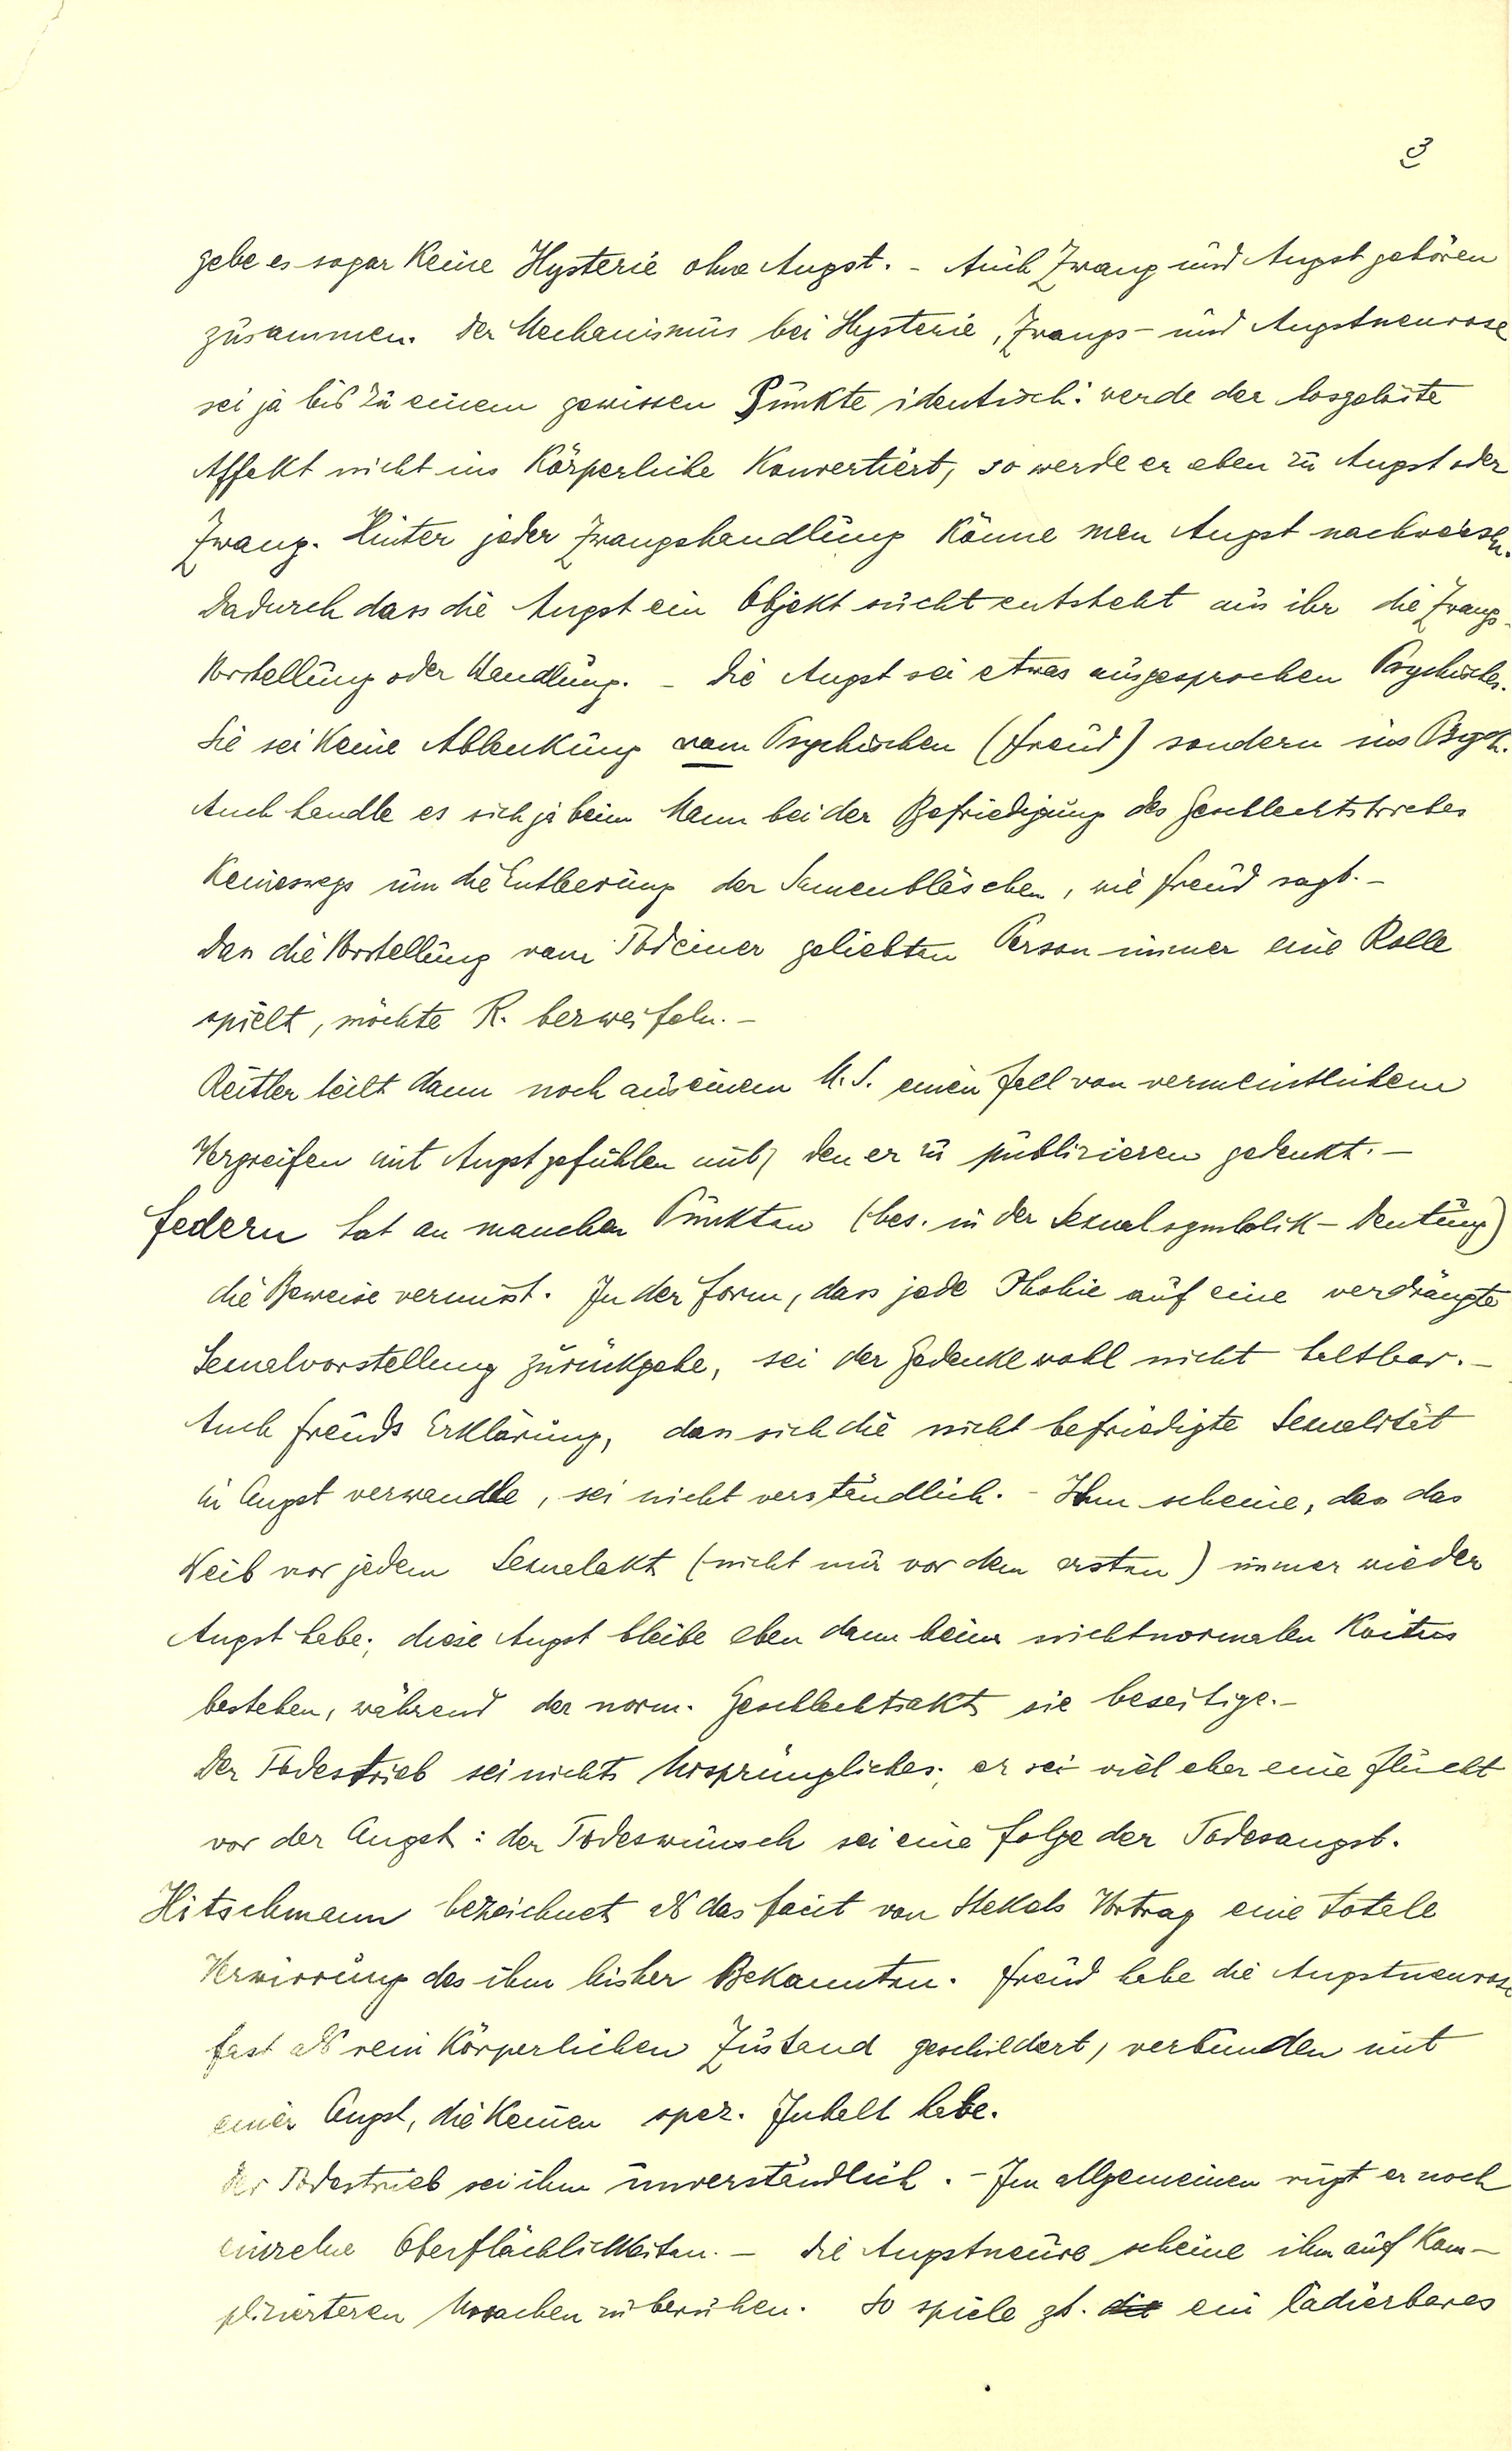 3
gebe es sogar keine Hysterie ohne Angst. - Auch Zwang und Angst gehören
zusammen. Der Mechanismus bei Hysterie, Zwangs- und Angstneurose
sei ja bis zu einem gewissen Punkte identisch: werde der losgelöste
Affekt nicht ins Körperliche konvertiert, so werde er eben zu Angst oder
Zwang. Hinter jeder Zwangshandlung könne man Angst nachweisen.
Dadurch dass die Angst ein Objekt sucht entsteht aus ihr die Zwangs-
vorstellung oder Handlung. - Die Angst sei etwas ausgesprochen Psychisches.
Sie sei keine Ablenkung vom Psychischen (Freud) sondern ins Psych.
Auch handle es sich ja beim Mann bei der Befriedigung des Geschlechtstriebes
keineswegs um die Entleerung der Samenbläschen, wie Freud sagt. -
Dass die Vorstellung vom Tod einer geliebten Person immer eine Rolle
spielt, möchte R. bezweifeln. -
Reitler teilt dann noch aus einem M.S. einen Fall von vermeintlichem
Vergreifen mit Angstgefühlen mit, den er zu publizieren gedenkt. -
Federn hat an manchen Punkten (bes. in der Sexualsymbolik-Deutung)
die Beweise vermisst. In der Form, dass jede Phobie auf eine verdrängte
Sexualvorstellung zurückgehe, sei der Gedanke wohl nicht haltbar. -
Auch Freuds Erklärung, dass sich die nicht befriedigte Sexualität
in Angst verwandle, sei nicht verständlich. - Ihm scheine, dass das
Weib vor jedem Sexualakt (nicht nur vor dem ersten) immer wieder
Angst habe; diese Angst bleibe eben dann beim nichtnormalen Koitus
bestehen, während der norm. Geschlechtsakt sie beseitige. -
Der Todestrieb sei nichts Ursprüngliches; er sei viel eher eine Flucht
vor der Angst: der Todeswunsch sei eine Folge der Todesangst.
Hitschmann bezeichnet als das Facit von Stekels Vortrag eine totale
Verwirrung des ihm bisher Bekannten. Freud habe die Angstneurose
fast als rein körperlichen Zustand geschildert, verbunden mit
einer Angst, die keinen spez. Inhalt habe.
Der Todestrieb sei ihm unverständlich. - Im allgemeinen rügt er noch
einzelne Oberflächlichkeiten. - Die Angstneurose scheine ihm auf kom-
plizierteren Ursachen zu beruhen. So spiele zb. die ein lädierbares